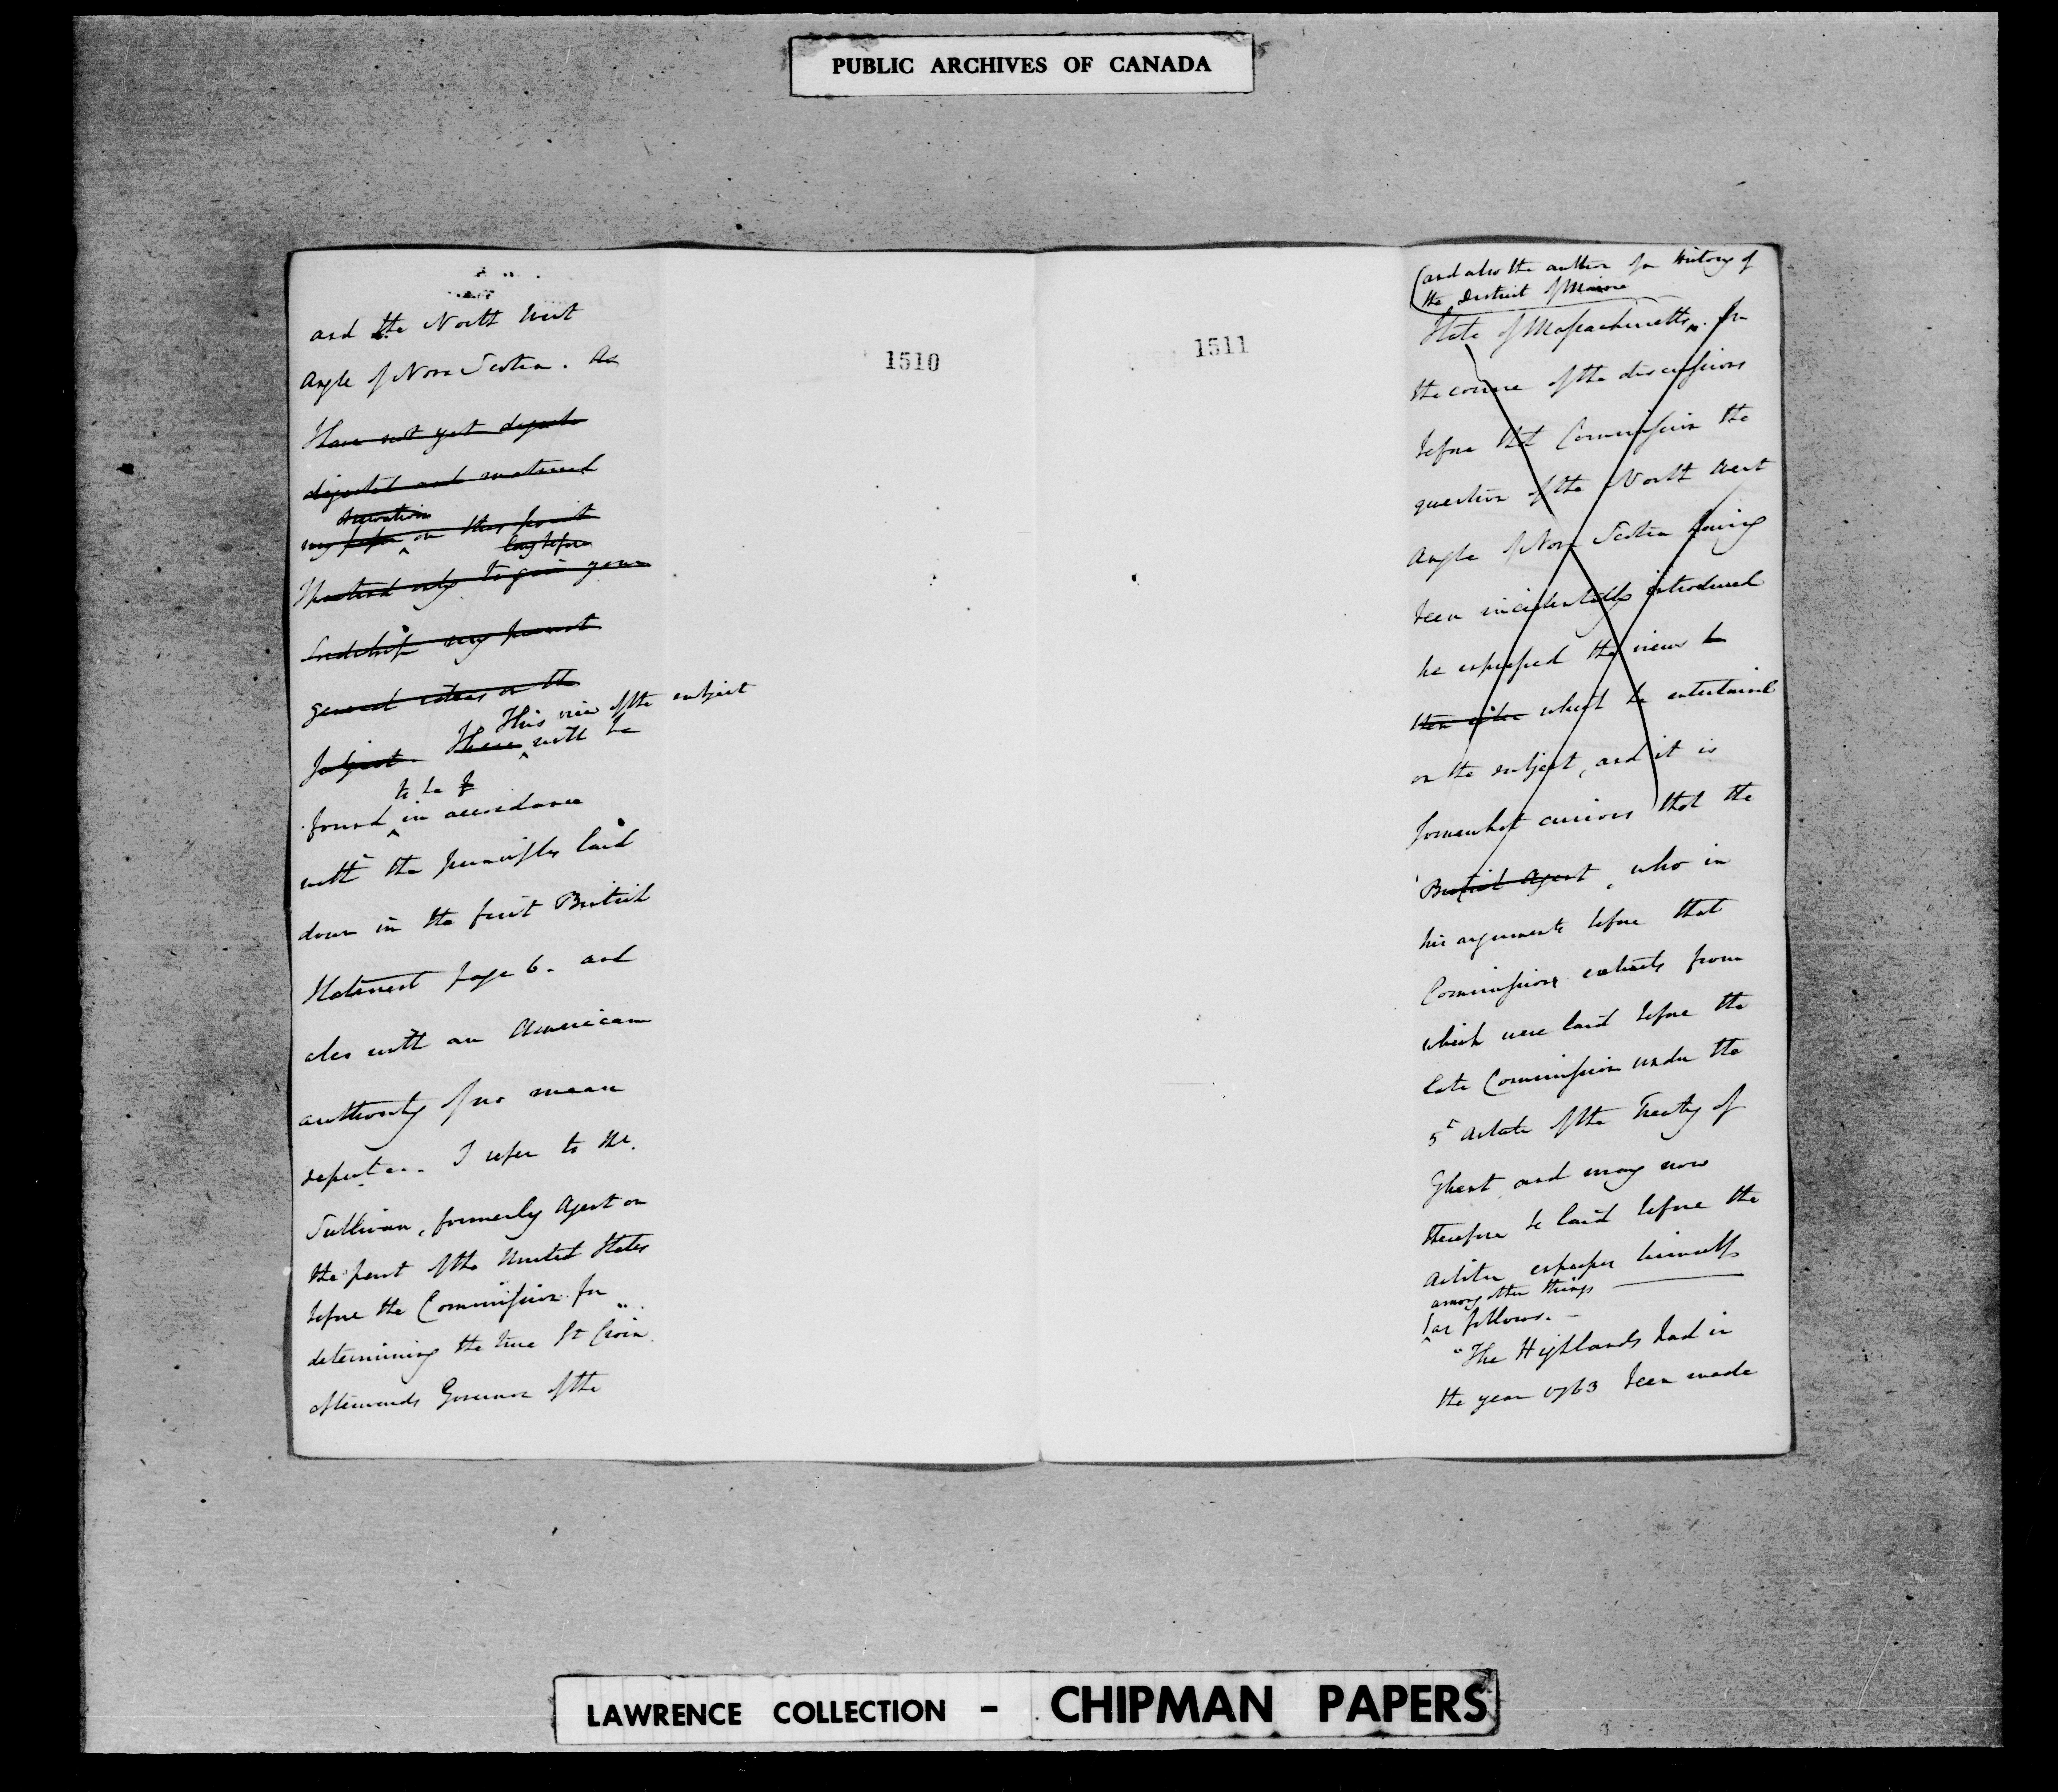 PUBLIC ARCHIVES OF CANADA
and the North West
Angle of Nova Scotia. As
I have not yet digeste
digested and matured
observations
my on this point
long before
I pretend only to give your
Lordship my present
general ideas on the
This view of the subject
Subject. These will be
to be
found in accordance
with the principles laid
down in the first British
Statement page 6. and
also with an American
authority of no mean
repute. I refer to Mr.
Sullivan, formerly Agent on
the part of the United States
before the Commission for
determining the true St Croix
afterwards Governor of the
1510
1511
(and also the author of a History of
the District of Maine
State of Massachusetts. In
the course of the discussions
before that Commission the
question of the North West
Angle of Nova Scotia having
been incidentally introduced
he expressed the views he
then which he entertained
on the subject, and it is
somewhat curious that the
British Agent, who in
his arguments before that
Commission extracts from
which were laid before the
late Commission under the
5th Article of the Treaty of
Ghent and may now
therefore be laid before the
Arbiter expresses himself
among other things
as follows. —
"The Highlands had in
the year 1763 been made
LAWRENCE COLLECTION - CHIPMAN PAPERS